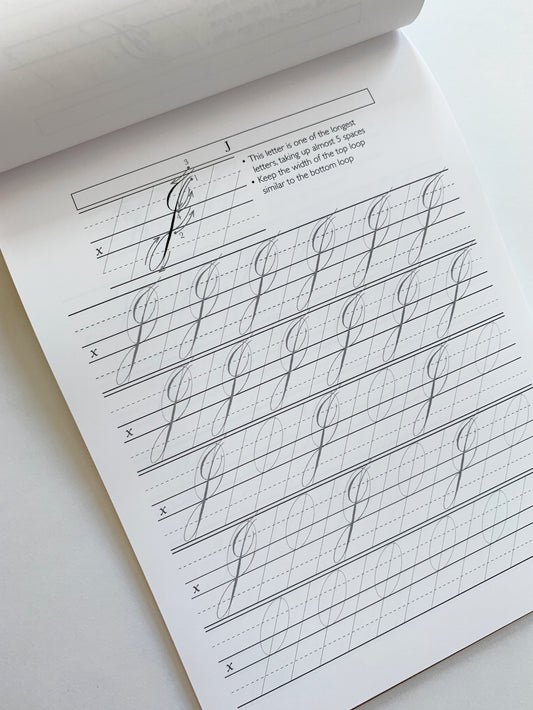 J
• This letter is one of the longest
letters, taking up almost 5 spaces
• Keep the width of the top loop
similar to the bottom loop
3
1
2
x
J
x
J J J J J J
x
J J J J J J
x
J J J
x
J J J
x